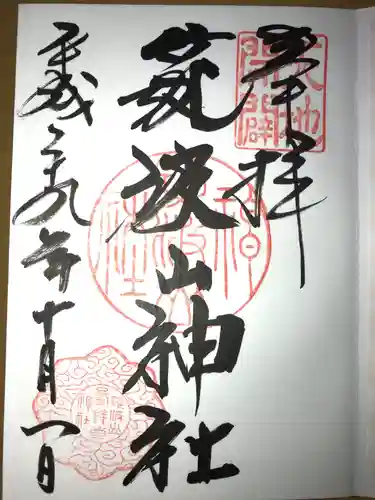 奉拝
天地開闢
筑波山神社
平成二十九年十月一日